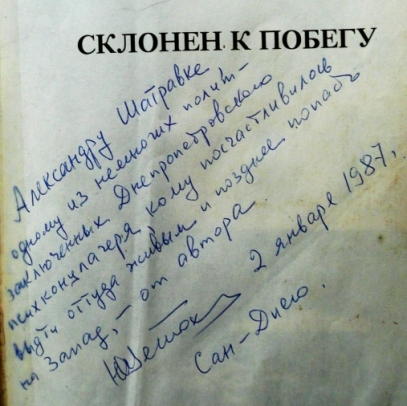 СКЛОНЕН К ПОБЕГУ
Александру Шатравке
одному из немногих полит-
заключенных Днепропетровского
психконцлагеря кому посчастливилось
выдти оттуда живым и позднее попасть
на Запад, – от автора
2 января 1987,
Сан-Диего.